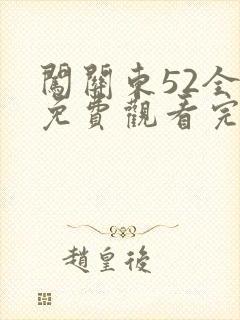 闖關東52全
免費觀看完
趙皇後